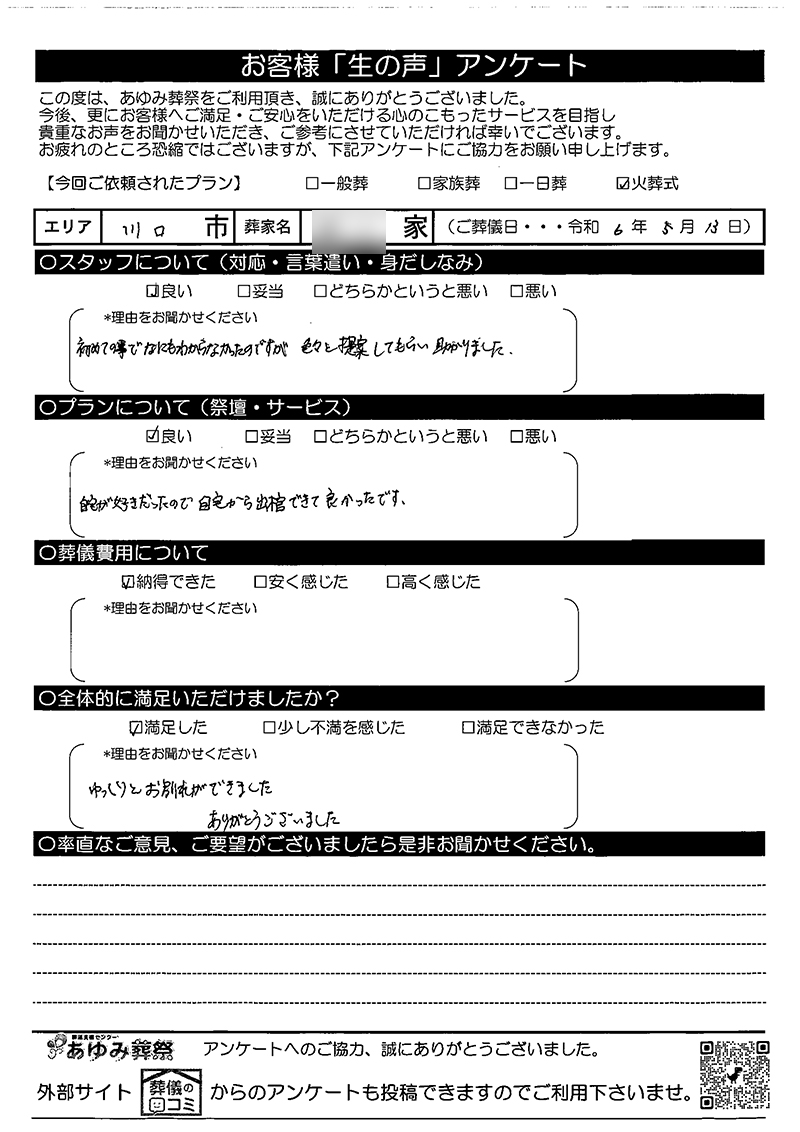 お客様「生の声」アンケート
この度は、あゆみ葬祭をご利用頂き、誠にありがとうございました。
今後、更にお客様へご満足・ご安心をいただける心のこもったサービスを目指し
貴重なお声をお聞かせいただき、ご参考にさせていただければ幸いでございます。
お疲れのところ恐縮ではございますが、下記アンケートにご協力をお願い申し上げます。
【今回ご依頼されたプラン】 □一般葬 □家族葬 □一日葬 ☑火葬式
エリア 川口 市 葬家名 家 (ご葬儀日・・・令和 6 年 5 月 13 日)
〇スタッフについて(対応・言葉遣い・身だしなみ)
☑良い □妥当 □どちらかというと悪い □悪い
*理由をお聞かせください
初めての事でなにもわからなかったのですが 色々と提案してもらい助かりました.
〇プランについて(祭壇・サービス)
☑良い □妥当 □どちらかというと悪い □悪い
*理由をお聞かせください
自宅が好きだったので自宅から出棺できて良かったです、
〇葬儀費用について
☑納得できた □安く感じた □高く感じた
*理由をお聞かせください
〇全体的に満足いただけましたか?
☑満足した □少し不満を感じた □満足できなかった
*理由をお聞かせください
ゆっくりとお別れができました
ありがとうございました
〇率直なご意見、ご要望がございましたら是非お聞かせください。
あゆみ葬祭 アンケートへのご協力、誠にありがとうございました。
外部サイト 葬儀の口コミ からのアンケートも投稿できますのでご利用下さいませ。